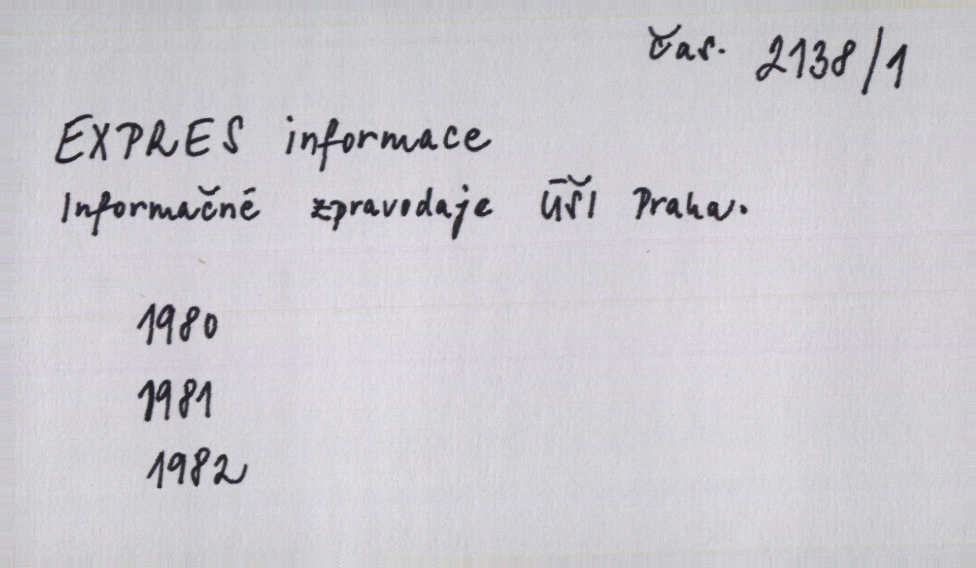 Čas. 2138/1
EXPRES informace
Informačné zpravodaje ÚŠI Praha.
1980
1981
1982